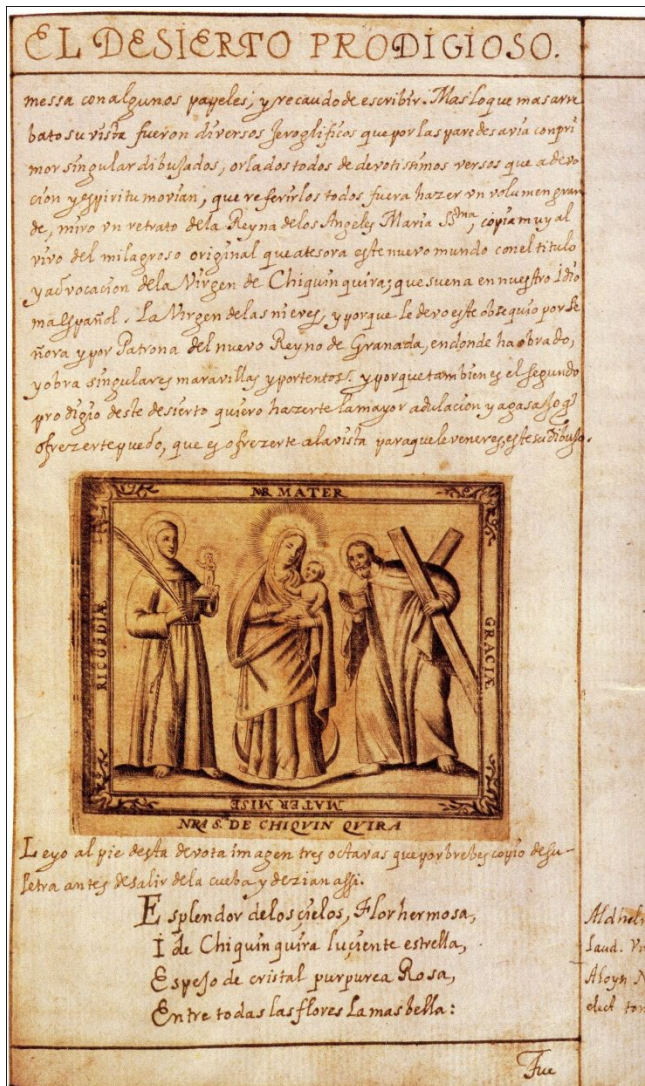 EL DESIERTO PRODIGIOSO.
messa con algunos papeles, y recaudo de escribir. Mas lo que mas arre
bato su vista fueron diversos Jeroglificos que por las paredes avia con pri
mor singular dibujados, orlados todos de devotissimos versos que a devo
cion y espiritu movian, que referirlos todos fuera hazer vn volumen gran
de, miro vn retrato dela Reyna delos Angeles Maria SSma, copia muy al
vivo del milagroso original que atesora este nuevo mundo con el titulo
y advocacion dela Virgen de Chiquinquira; que suena en nuestro Idio
ma español. La Virgen delas nieves, y porque le devo este obsequio por Se
ñora y por Patrona del nuevo Reyno de Granada, en donde ha obrado,
y obra singulares maravillas y portentos. y porque tambien es el segundo
prodigio deste desierto quiero hazerte la mayor adulacion y agasajo q̃
ofrezerte puedo, que es ofrezerte ala vista para que le veneres, este su dibujo.
MATER
GRACIÆ
MATER MISE
RICORDIÆ
NRA S. DE CHIQVIN QVIRA
Leyo al pie desta devota imagen tres octavas que por brebes copio de su
letra antes de salir dela cueba y dezian assi.
Esplendor delos çielos, Flor hermosa,
I de Chiquinquira luçiente estrella,
Espejo de cristal purpurea Rosa,
Entre todas las flores La mas bella:
Fue
Laud.